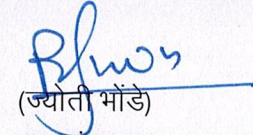 (ज्योती भोंडे)